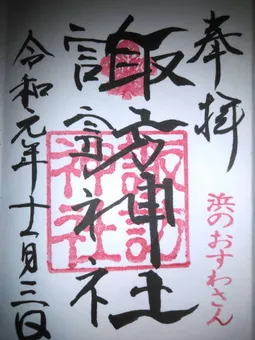 奉拝
浜のおすわさん
諏訪神社
諏訪
神社
令和元年十一月三日